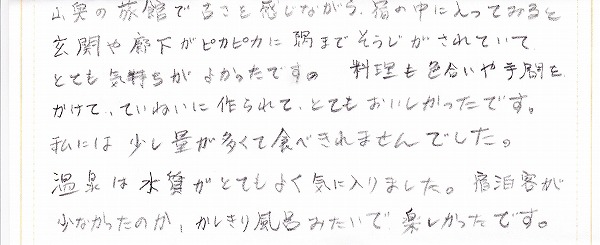 山奥の旅館で古さを感じながら、宿の中に入ってみると
玄関や廊下がピカピカに隅までそうじがされていて
とても気持ちがよかったです。料理も色合いや手間を
かけて、ていねいに作られて、とてもおいしかったです。
私には少し量が多くて食べきれませんでした。
温泉は水質がとてもよく気に入りました。宿泊客が
少なかったのか、かしきり風呂みたいで楽しかったです。